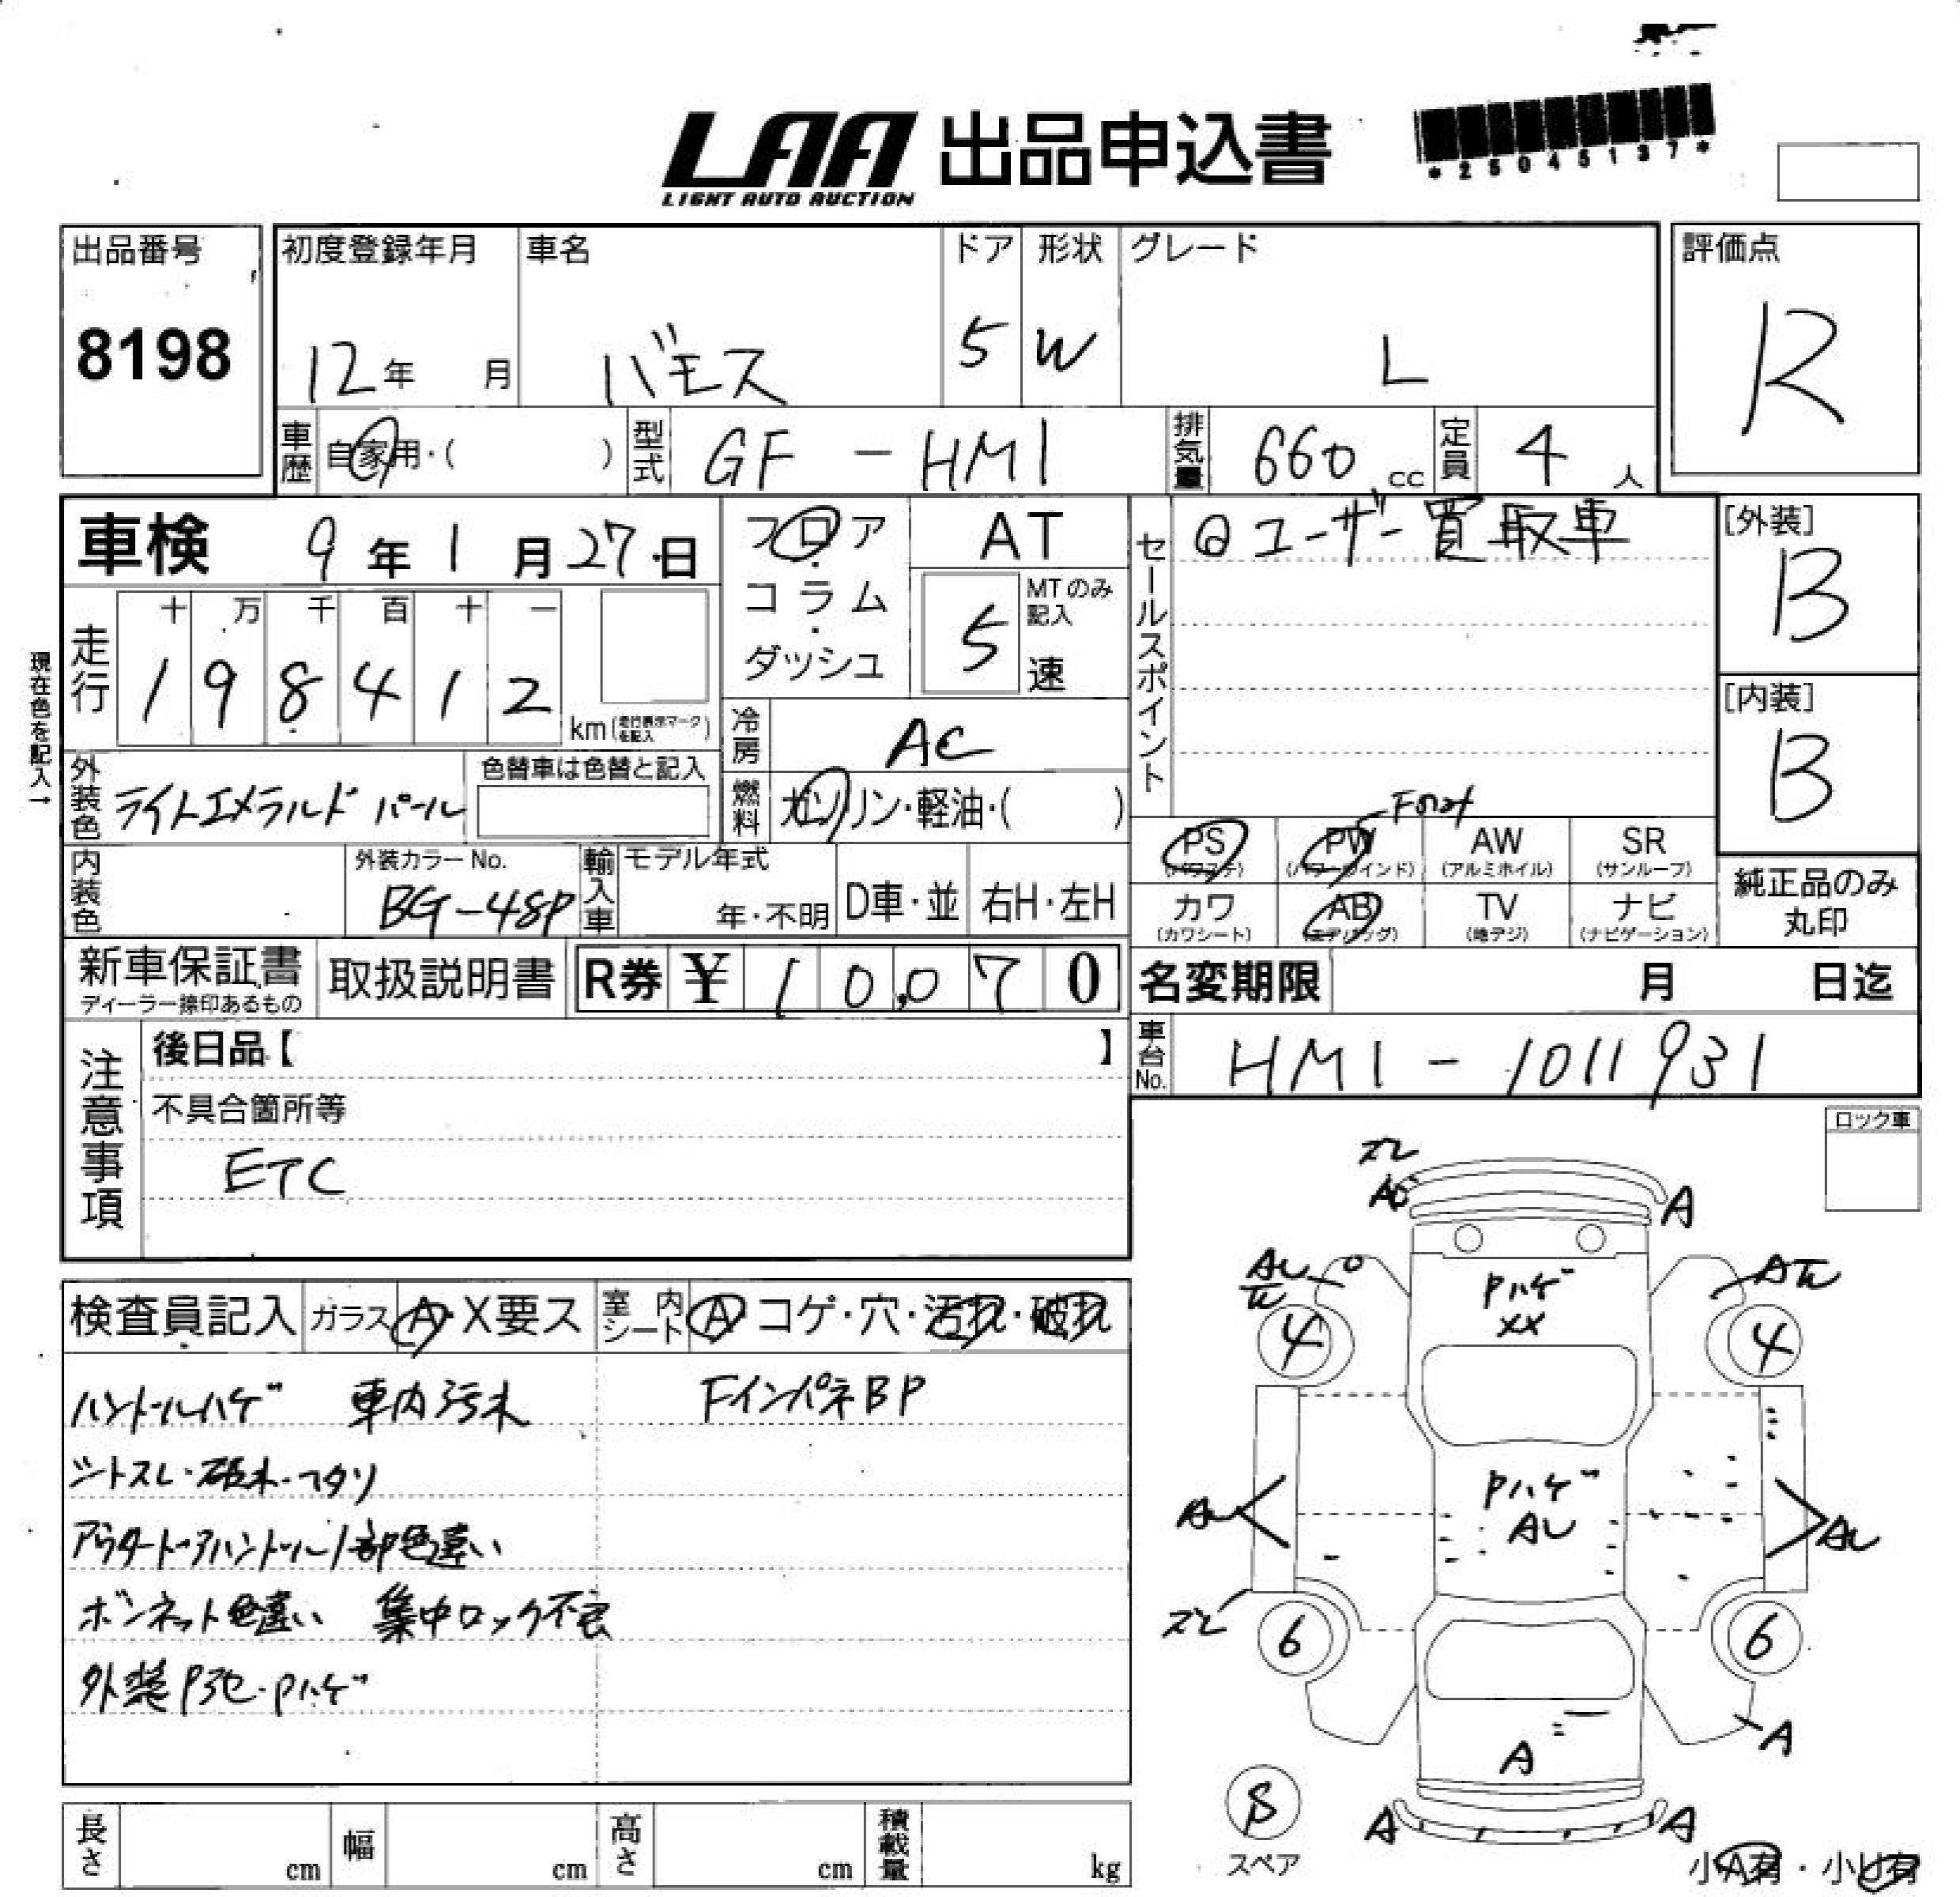 LAA 出品申込書
LIGHT AUTO AUCTION
*25045137*
出品番号
8198
初度登録年月
12年 月
車名
バモス
ドア
5
形状
W
グレード
L
評価点
R
車歴
自家用・( )
型式
GF - HM1
排気量
660 cc
定員
4 人
車検 9年 1月 27日
フロア・コラム・ダッシュ
AT
MTのみ記入
5 速
セールスポイント
ユーザー買取車
[外装]
B
[内装]
B
現在色を記入→
走行
十 万 千 百 十 一
1 9 8 4 1 2
km(走行表示マークを記入)
冷房
AC
燃料
ガソリン・軽油・( )
外装色
ライトエメラルド パール
色替車は色替と記入
Front
PS (パワステ)
PW (パワーウインド)
AW (アルミホイル)
SR (サンルーフ)
カワ (カワシート)
AB (エアバッグ)
TV (地デジ)
ナビ (ナビゲーション)
純正品のみ丸印
内装色
外装カラーNo.
BG-48P
輸入車
モデル年式
年・不明
D車・並
右H・左H
新車保証書
ディーラー捺印あるもの
取扱説明書
R券 ¥ 10,070
名変期限 月 日迄
車台No.
HM1 - 1011931
注意事項
後日品【 】
不具合箇所等
ETC
ロック車
検査員記入
ガラス A・X要ス
室内シート A コゲ・穴・汚れ・破れ
ハンドルハゲ 車内汚れ
Fインパネ BP
シートスレ・破れ・ヘタリ
アウタードアハンドル1部色違い
ボンネット色違い 集中ロック不良
外装P・Pハゲ
ズレ
A
Pハゲ
XX
4
4
Pハゲ
AU
AU
AU
ズレ
6
6
A
A
A
A
スペア
小A有・小U有
長さ cm
幅 cm
高さ cm
積載量 kg